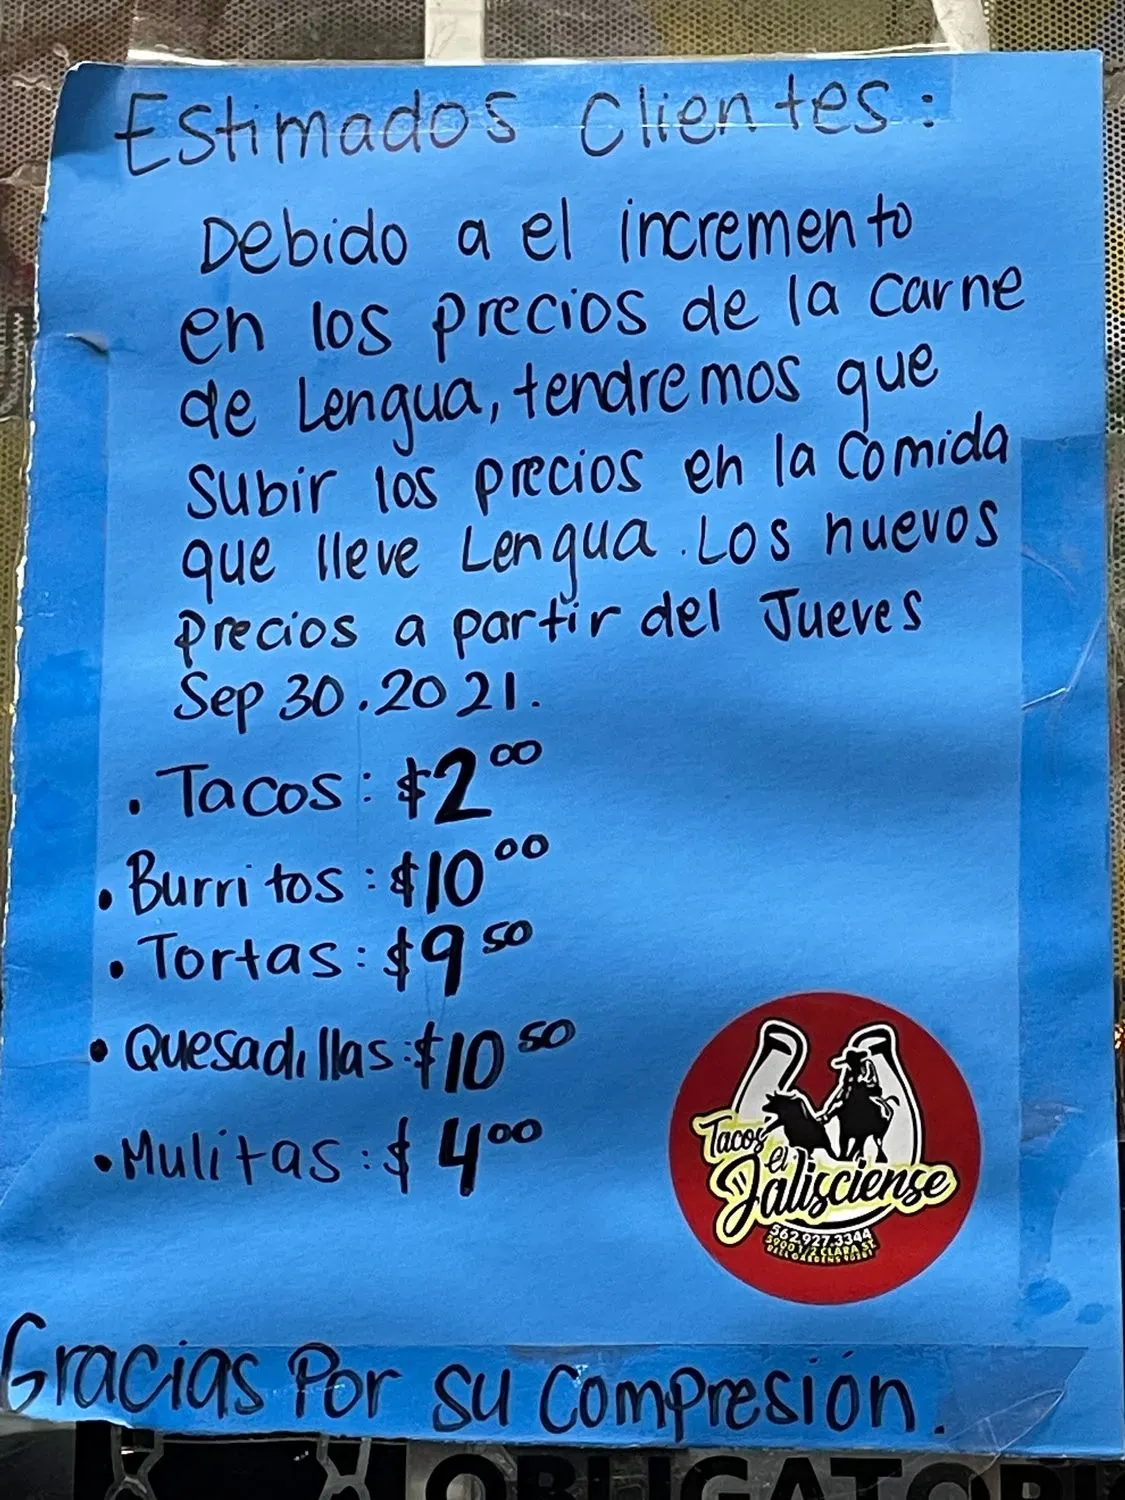 Estimados Clientes:
Debido a el incremento
en los precios de la carne
de Lengua, tendremos que
subir los precios en la comida
que lleve Lengua. Los nuevos
precios a partir del Jueves
Sep 30.2021.
. Tacos: $2⁰⁰
• Burritos: $10⁰⁰
• Tortas: $9⁵⁰
• Quesadillas: $10⁵⁰
• Mulitas: $4⁰⁰
Tacos
el
Jalisciense
562.927.3344
5900 1/2 CLARA ST.
BELL GARDENS 90201
Gracias Por su Compresión.
OBLIGATORI